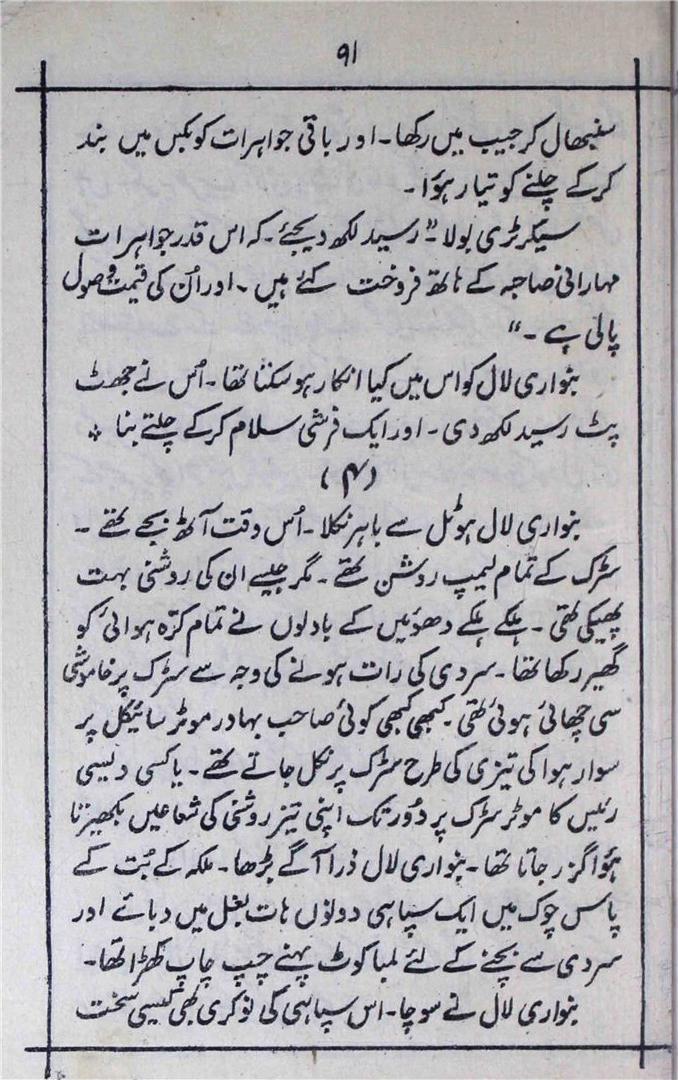 ۹۱
سنبھال کر جیب میں رکھا۔ اور باقی جواہرات کو بکس میں بند
کرکے چلنے کو تیار ہؤا۔
سیکرٹری بولا۔ "رسید لکھ دیجئے۔ کہ اس قدر جواہرات
مہارانی صاحبہ کے ہاتھ فروخت کئے ہیں۔ اور اُن کی قیمت وصول
پائی ہے۔"
بنواری لال کو اس میں کیا انکار ہو سکتا تھا۔ اُس نے جھٹ
پٹ رسید لکھ دی۔ اور ایک فرشی سلام کرکے چلتے بنا ٭
(۴)
بنواری لال ہوٹل سے باہر نکلا۔ اُس وقت آٹھ بجے تھے۔
سڑک کے تمام لیمپ روشن تھے۔ مگر جیسے ان کی روشنی بہت
پھیکی تھی۔ ہلکے ہلکے دھوئیں کے بادلوں نے تمام کرّہ ہوائی کو
گھیر رکھا تھا۔ سردی کی رات ہونے کی وجہ سے سڑک پر خاموشی
سی چھائی ہوئی تھی۔ کبھی کبھی کوئی صاحب بہادر موٹر سائیکل پر
سوار ہوا کی تیزی کی طرح سڑک پر نکل جاتے تھے۔ یا کسی دیسی
رئیس کا موٹر سڑک پر دُور تک اپنی تیز روشنی کی شعاعیں بکھیرتا
ہؤا گزر جاتا تھا۔ بنواری لال ذرا آگے بڑھا۔ ملکہ کے بُت کے
پاس چوک میں ایک سپاہی دونوں ہات بغل میں دبائے اور
سردی سے بچنے کے لئے لمبا کوٹ پہنے چپ چاپ کھڑا تھا۔
بنواری لال نے سوچا۔ اس سپاہی کی نوکری بھی کیسی سخت